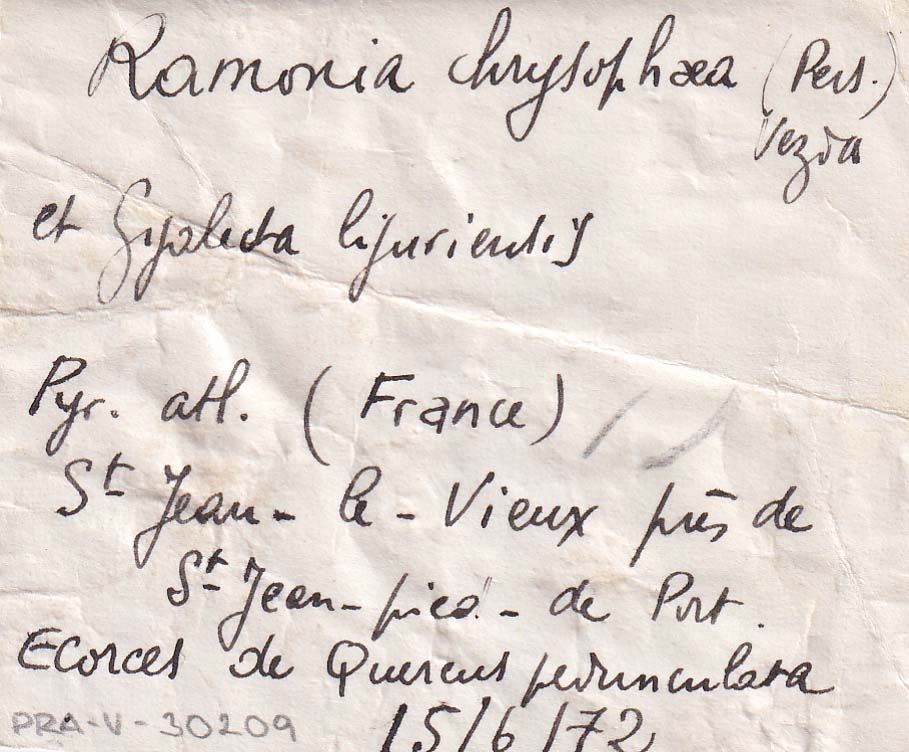 Ramonia chrysophaea (Pers.)
Vezda
et Gyalecta liguriensis
Pyr. atl. (France)
St Jean-le-Vieux près de
St Jean-pied-de Port.
Ecorces de Quercus pedunculata
PRA-V-30209
15/6/72